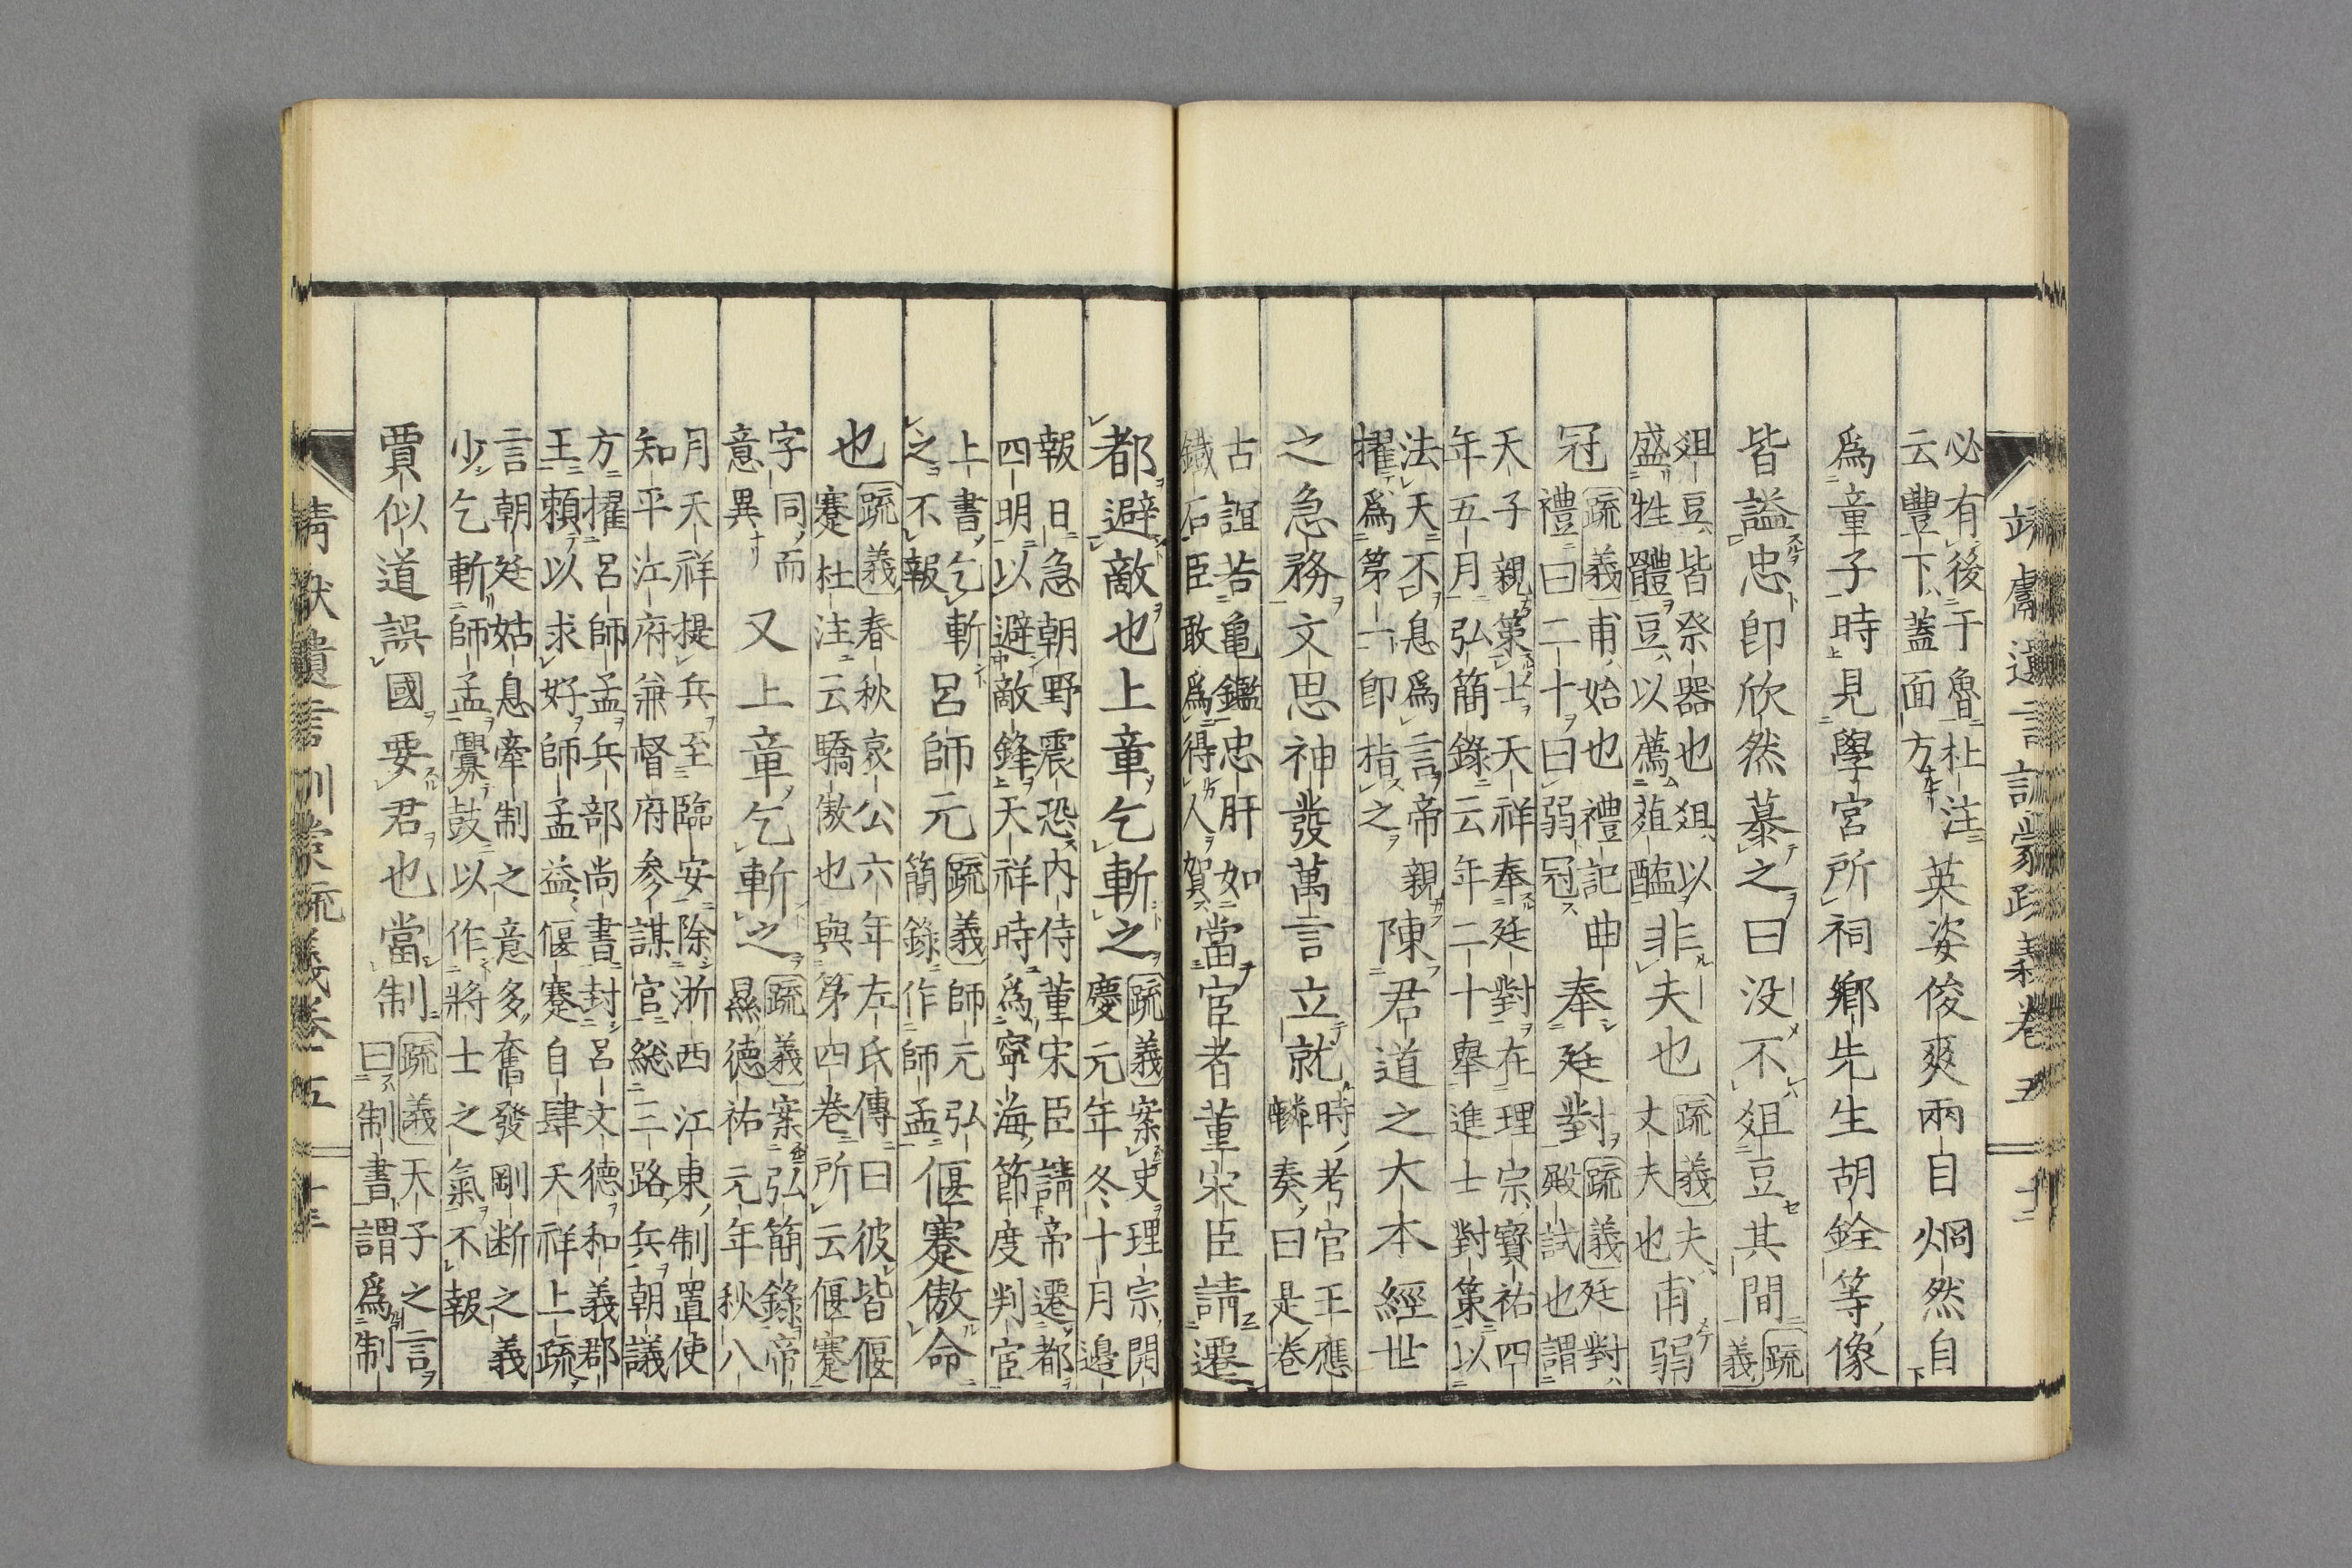 靖獻遺言訓蒙疏義卷五 十二
必有後于魯杜注
云豐下蓋面方
英姿俊爽兩目烱然自
爲童子時見學宮所祠鄉先生胡銓等像
皆謚忠卽欣然慕之曰没不俎豆其間
疏
義
俎豆皆祭器也俎以
盛牲體豆以薦葅醢
非夫也
疏義夫
丈夫也
甫弱
冠
疏義甫始也禮記曲
禮曰二十曰弱冠
奉廷對
疏義廷對
殿試也謂
天子親策士天祥奉廷對在理宗寶祐四
年五月弘簡錄云年二十舉進士對策以
法天不息爲言帝親
擢爲第一卽指之
陳君道之大本經世
之急務文思神發萬言立就
時考官王應
麟奏曰是卷
古誼若龜鑑忠肝如
鐵石臣敢爲得人賀
當宦者董宋臣請遷
都避敵也上章乞斬之
疏義案史理宗開
慶元年冬十月邊
報日急朝野震恐内侍董宋臣請帝遷都
四明以避敵鋒天祥時爲寧海節度判官
上書乞斬
之不報
呂師元
疏義師元弘
簡錄作師孟
偃蹇傲命
也
疏義春秋哀公六年左氏傳曰彼皆偃
蹇杜注云驕傲也與第四卷所云偃蹇
字同而
意異
又上章乞斬之
疏義案弘簡錄帝
㬎德祐元年秋八
月天祥提兵至臨安除浙西江東制置使
知平江府兼督府參謀官総三路兵朝議
方擢呂師孟兵部尚書封呂文德和義郡
王賴以求好師孟益偃蹇自肆天祥上疏
言朝廷姑息牽制之意多奮發剛断之義
少乞斬師孟釁鼓以作將士之氣不報
賈似道誤國要君也當制
疏義天子之言
曰制書謂爲制
靖獻遺言訓蒙疏義卷五 十三